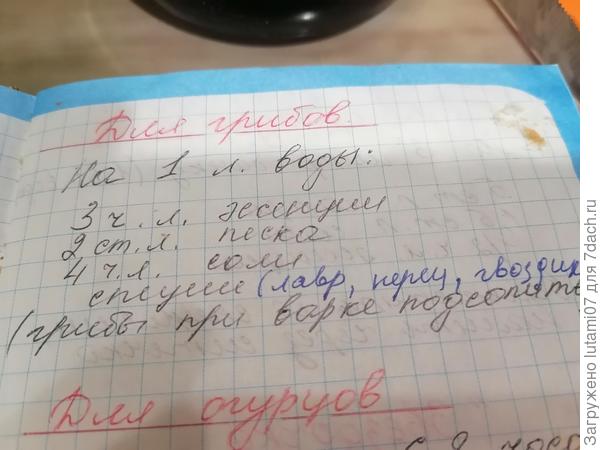 Для грибов
На 1 л. воды:
3 ч. л. эссенции
2 ст. л. песка
4 ч. л. соли
специи (лавр, перец, гвоздик
(грибы при варке подсолить
Для огурцов
Загружено lutami07 для 7dach.ru